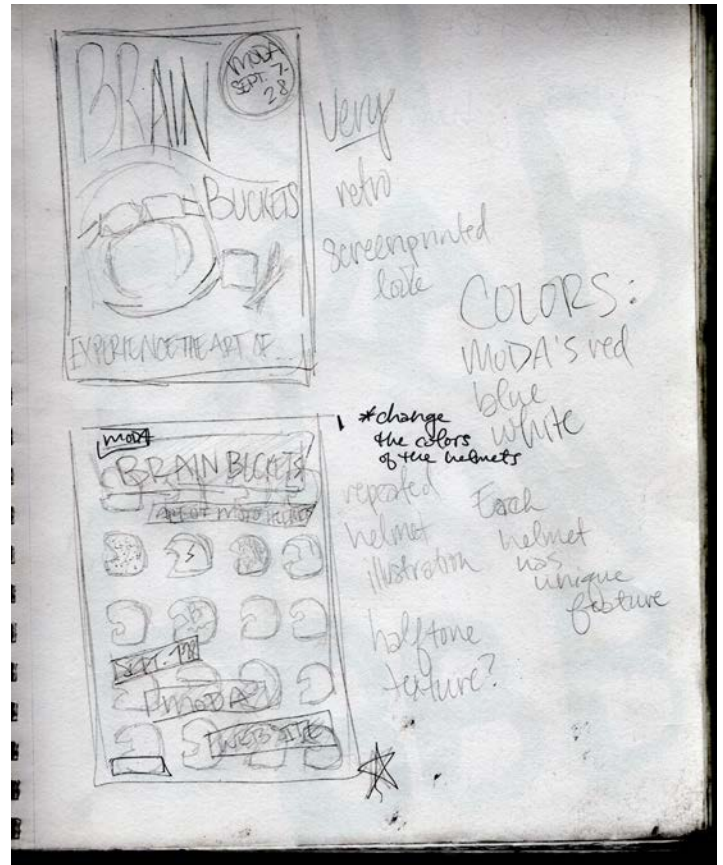 BRAIN
MODA
SEPT. 7-
28
BUCKETS
EXPERIENCE THE ART OF...
very
retro
screenprinted
look
COLORS:
MODA'S red
blue
white
MODA
BRAIN BUCKETS
ART OF MOTO HELMETS
SEPT. 7-28
MODA
WEBSITE
*change
the colors
of the helmets
repeated
helmet
illustration
halftone
texture?
Each
helmet
has
unique
feature